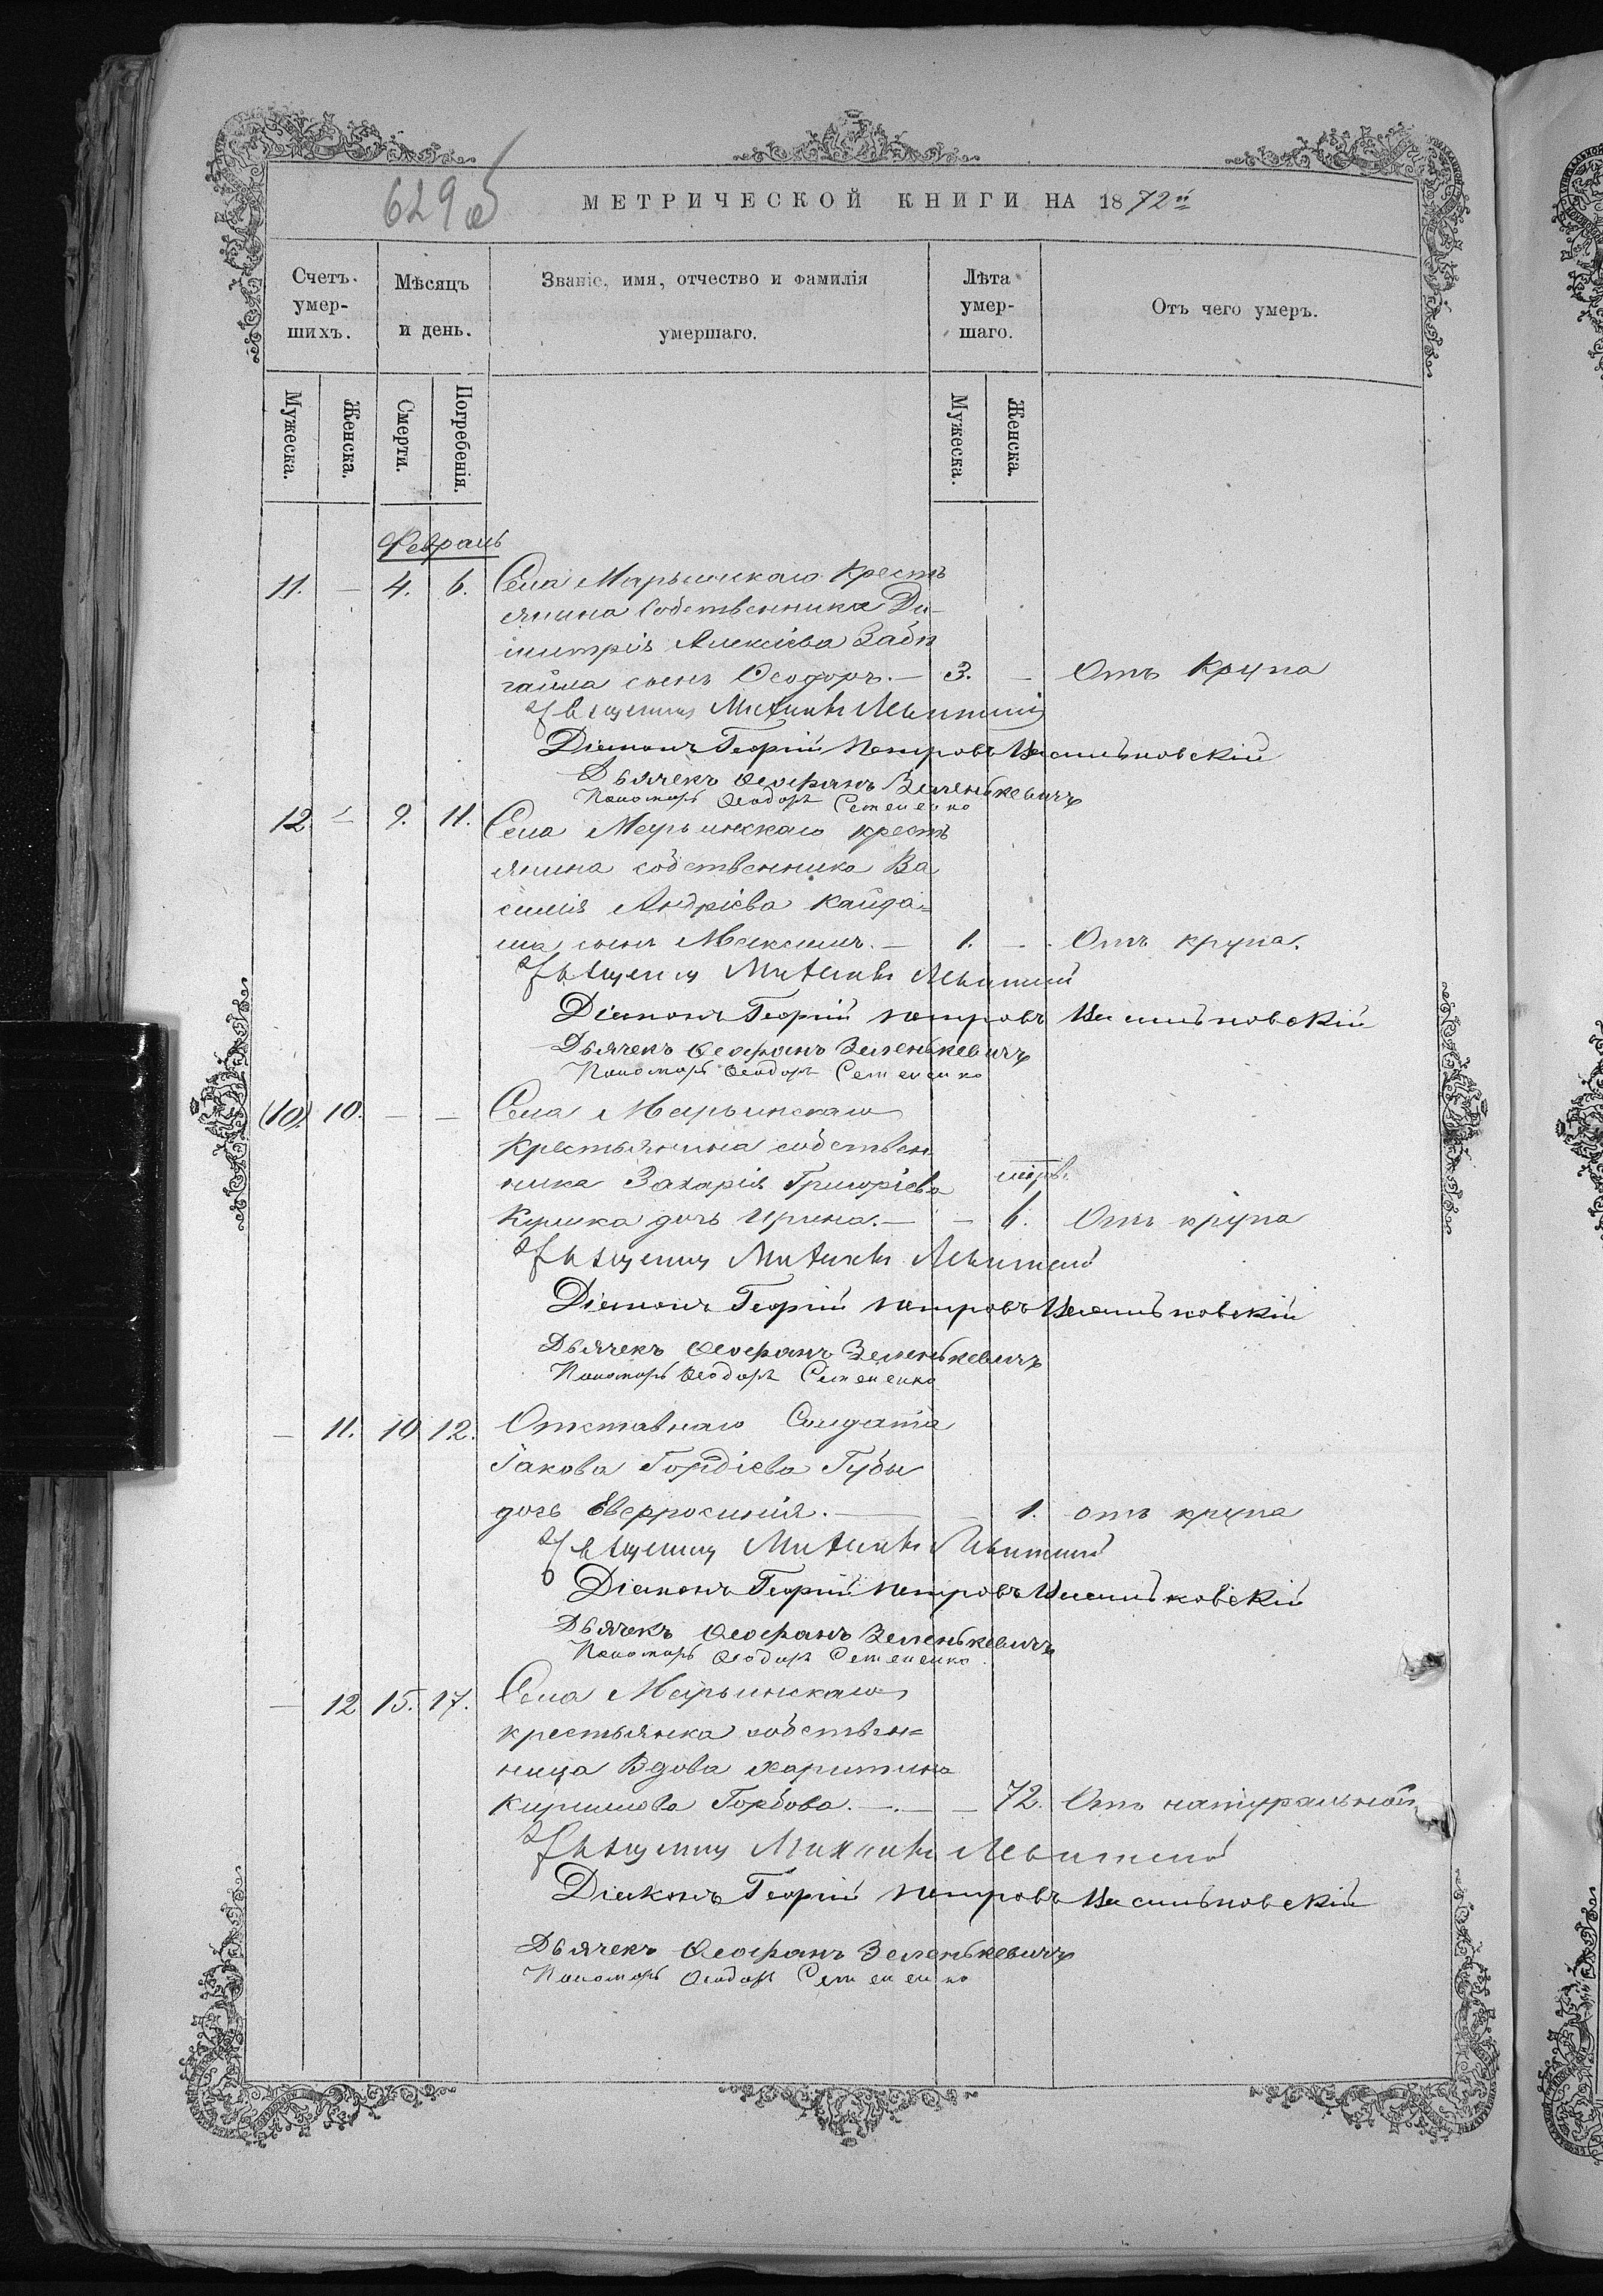 629об
МЕТРИЧЕСКОЙ КНИГИ НА 1872й
Счетъ умер-шихъ.
Мѣсяцъ и день.
Званіе, имя, отчество и фамилія умершаго.
Лѣта умер-шаго.
Отъ чего умеръ.
Мужеска.
Женска.
Смерти.
Погребенія.
Мужеска.
Женска.
Февраль
11. — 4. 6. Села Марьинскаго Кресть
янина Собственника Ди-
митрія Алексіева Заби
гайла сынъ Ѳеодоръ. — 3. — Отъ Крупа
Священникъ Михаилъ Левитскій
Діаконъ Георгій Петровъ Васильковскій
Дьячекъ Ѳеофанъ Зеленькевичъ
Пономарь Ѳеодоръ Семененко
12. — 9. 11. Села Марьинскаго кресть
янина собственника Ва
силія Андріева Кайда=
ша сынъ Максимъ. — 1. — Отъ крупа.
Священникъ Михаилъ Левитскій
Діаконъ Георгій Петровъ Васильковскій
Дьячекъ Ѳеофанъ Зеленькевичъ
Пономарь Ѳеодоръ Семененко
(10) 10. — — Села Марьинскаго
Крестьянина собствен
ника Захарія Григоріева
Кулика дочь Ирина. — — 6. Отъ крупа
Священникъ Михаилъ Левитскій
Діаконъ Георгій Петровъ Васильковскій
Дьячекъ Ѳеофанъ Зеленькевичъ
Пономарь Ѳеодоръ Семененко
— 11. 10 12. Отставнаго Солдата
Іакова Гордіева Губы
дочь Евфросинія. — — 1. отъ крупа
Священникъ Михаилъ Левитскій
Діаконъ Георгій Петровъ Васильковскій
Дьячекъ Ѳеофанъ Зеленькевичъ
Пономарь Ѳеодоръ Семененко
— 12 15. 17. Села Марьинскаго
крестьянка собствен=
ница Вдова Харитина
Кирилова Горбова. — — 72. Отъ натуральной
Священникъ Михаилъ Левитскій
Діаконъ Георгій Петровъ Васильковскій
Дьячекъ Ѳеофанъ Зеленькевичъ
Пономарь Ѳеодоръ Семененко